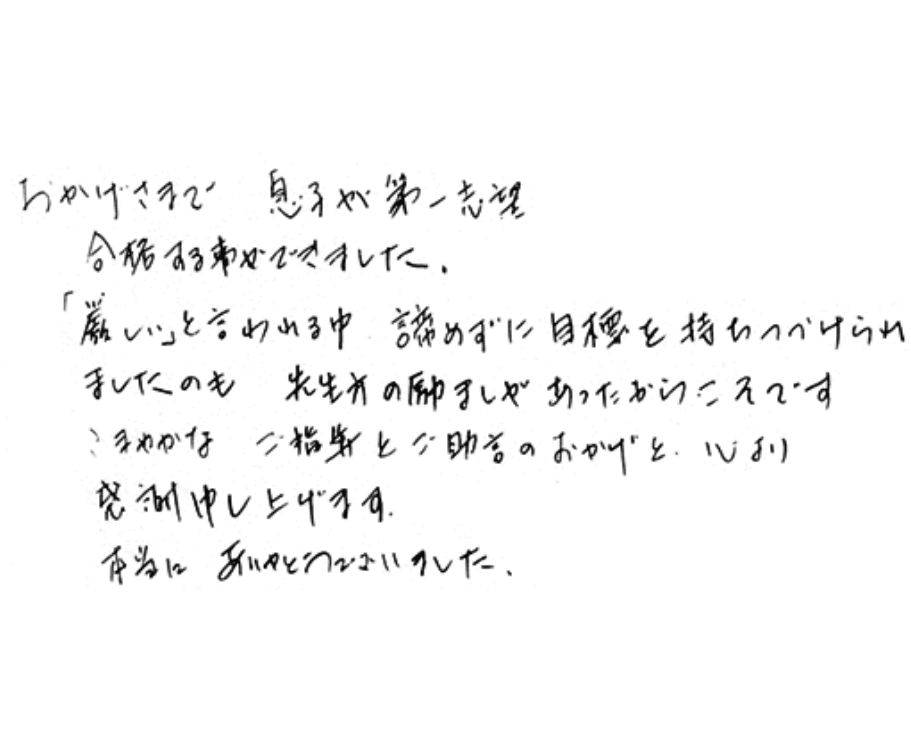 おかげさまで 息子が第一志望
合格する事ができました。
「厳しい」と言われる中 諦めずに目標を持ちつづけられ
ましたのも 先生方の励ましがあったからこそです
こまやかな ご指導とご助言のおかげと、心より
感謝申し上げます。
本当に ありがとうございました。